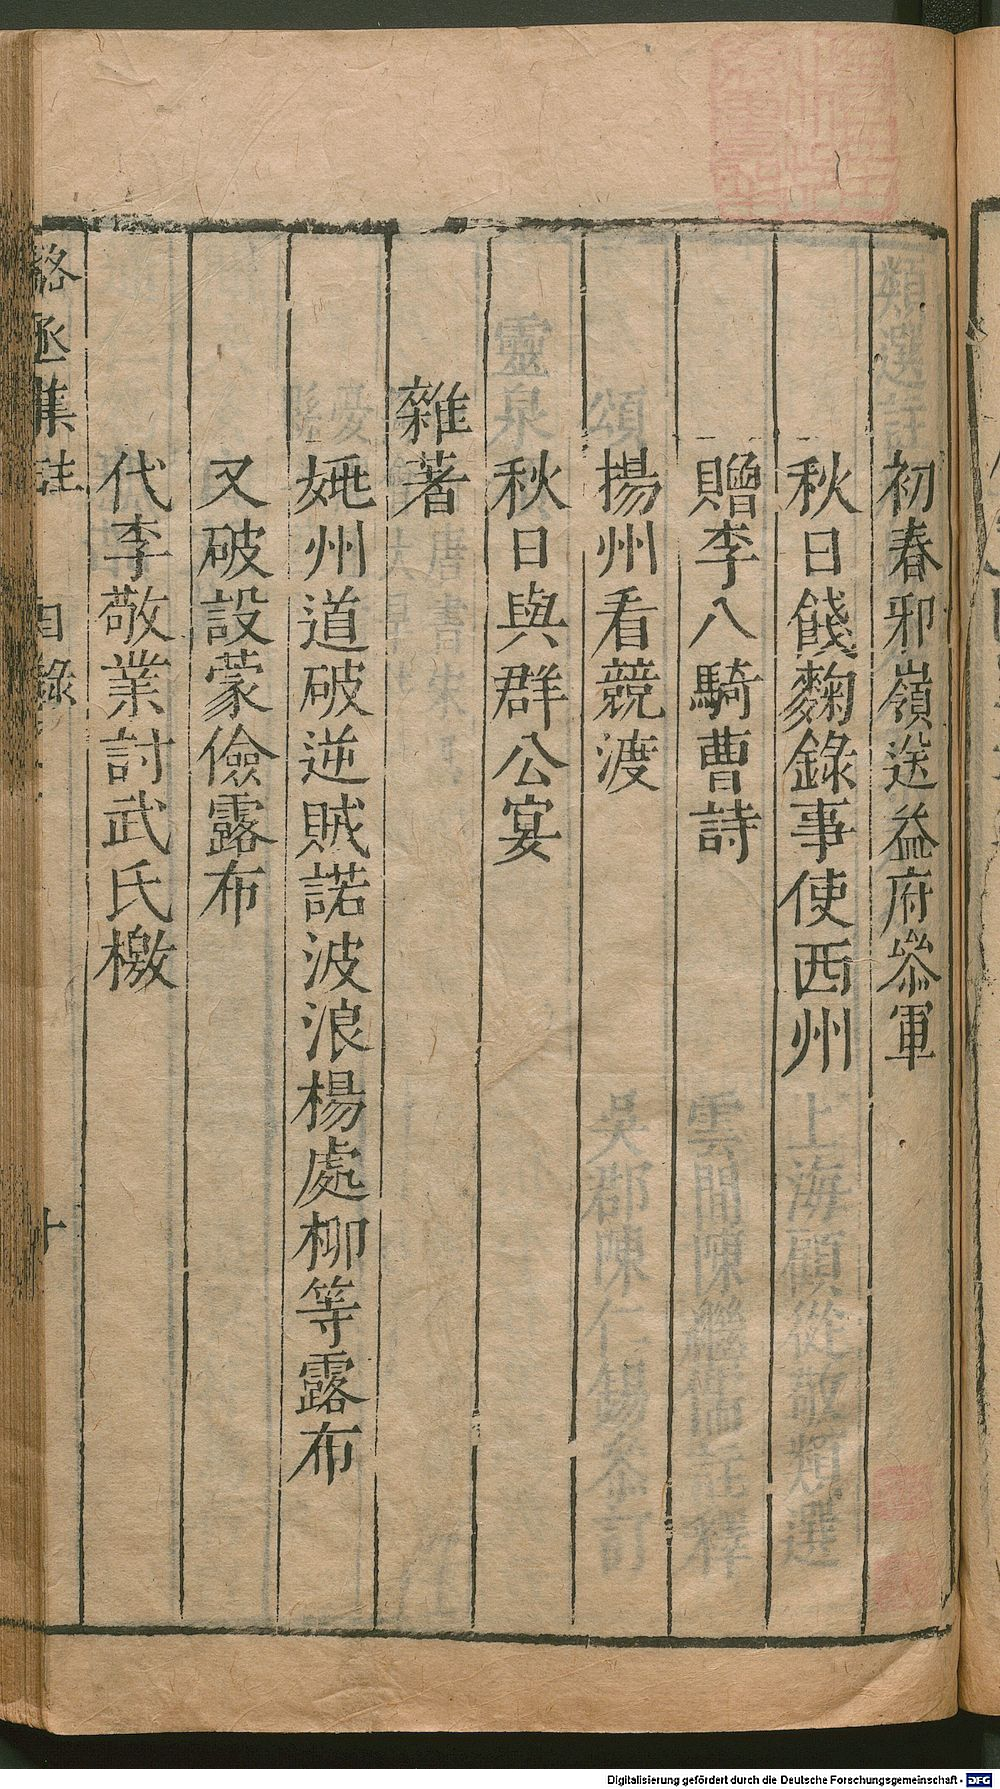 初春邪嶺送益府叅軍
秋日餞麴錄事使西州
贈李八騎曹詩
揚州看競渡
秋日與群公宴
雜著
姚州道破逆賊諾波浪楊處柳等露布
又破設蒙儉露布
代李敬業討武氏檄
駱丞集註
目錄
十
Digitalisierung gefördert durch die Deutsche Forschungsgemeinschaft - DFG